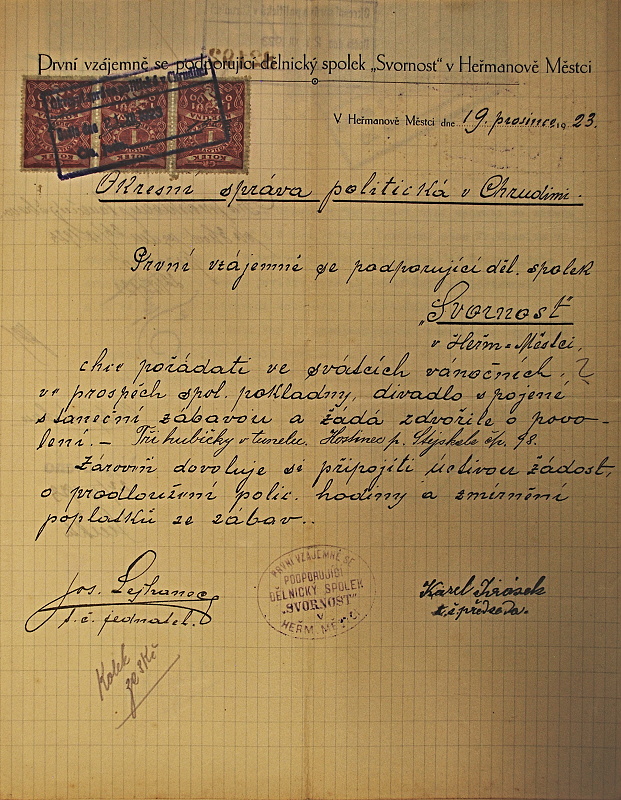 První vzájemně se podporující dělnický spolek „Svornost" v Heřmanově Městci
V Heřmanově Městci dne 19. prosince 1923.
Okresní správa politická v Chrudimi.
První vzájemně se podporující děl. spolek
„Svornost"
v Heřm. Městci,
chce pořádati ve svátcích vánočních, ?
ve prospěch spol. pokladny, divadlo spojené
s taneční zábavou a žádá zdvořile o povo-
lení. – Tři hubičky v tunelu. Hostinec p. Stýskala čp. 98.
Zároveň dovoluje se připojiti uctivou žádost,
o prodloužení polic. hodiny a zmírnění
poplatků ze zábav..
PRVNÍ VZÁJEMNĚ SE
PODPORUJÍCÍ
DĚLNICKÝ SPOLEK
„SVORNOST"
V
HEŘM. MĚSTCI
Jos. Lejhanec
t.č. jednatel.
Karel Jirásek
t.č. předseda.
Kolek